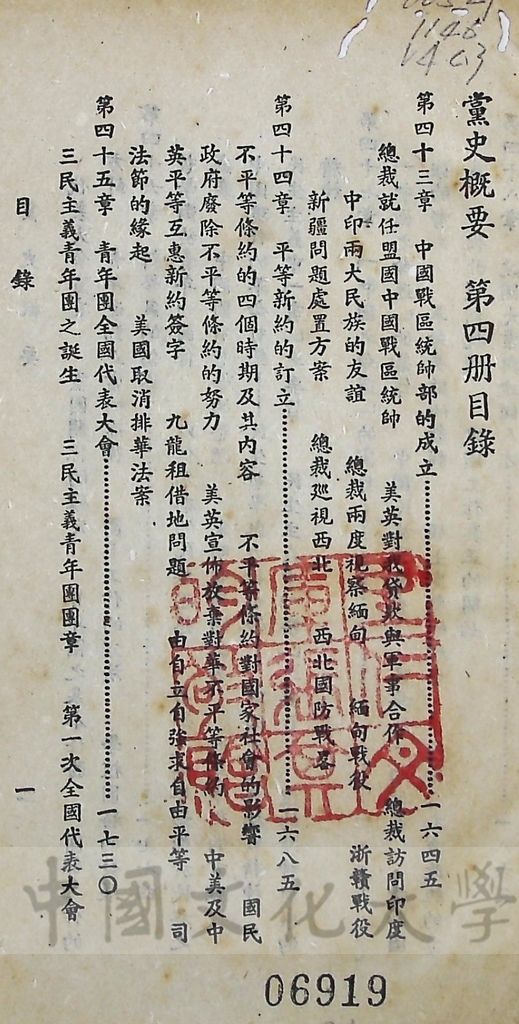 黨史概要　第四册目錄
第四十三章　中國戰區統帥部的成立…………一六四五
總裁就任盟國中國戰區統帥　美英對我貸款與軍事合作　總裁訪問印度
中印兩大民族的友誼　總裁兩度視察緬甸　緬甸戰役　浙贛戰役
新疆問題處置方案　總裁巡視西北　西北國防戰略
第四十四章　平等新約的訂立…………一六八五
不平等條約的四個時期及其內容　不平等條約對國家社會的影響　國民
政府廢除不平等條約的努力　美英宣佈放棄對華不平等條約　中美及中
英平等互惠新約簽字　九龍租借地問題　由自立自強求自由平等　司
法節的緣起　美國取消排華法案
第四十五章　青年團全國代表大會…………一七三〇
三民主義青年團之誕生　三民主義青年團團章　第一次全國代表大會
目錄　一
中國文化大學
06919